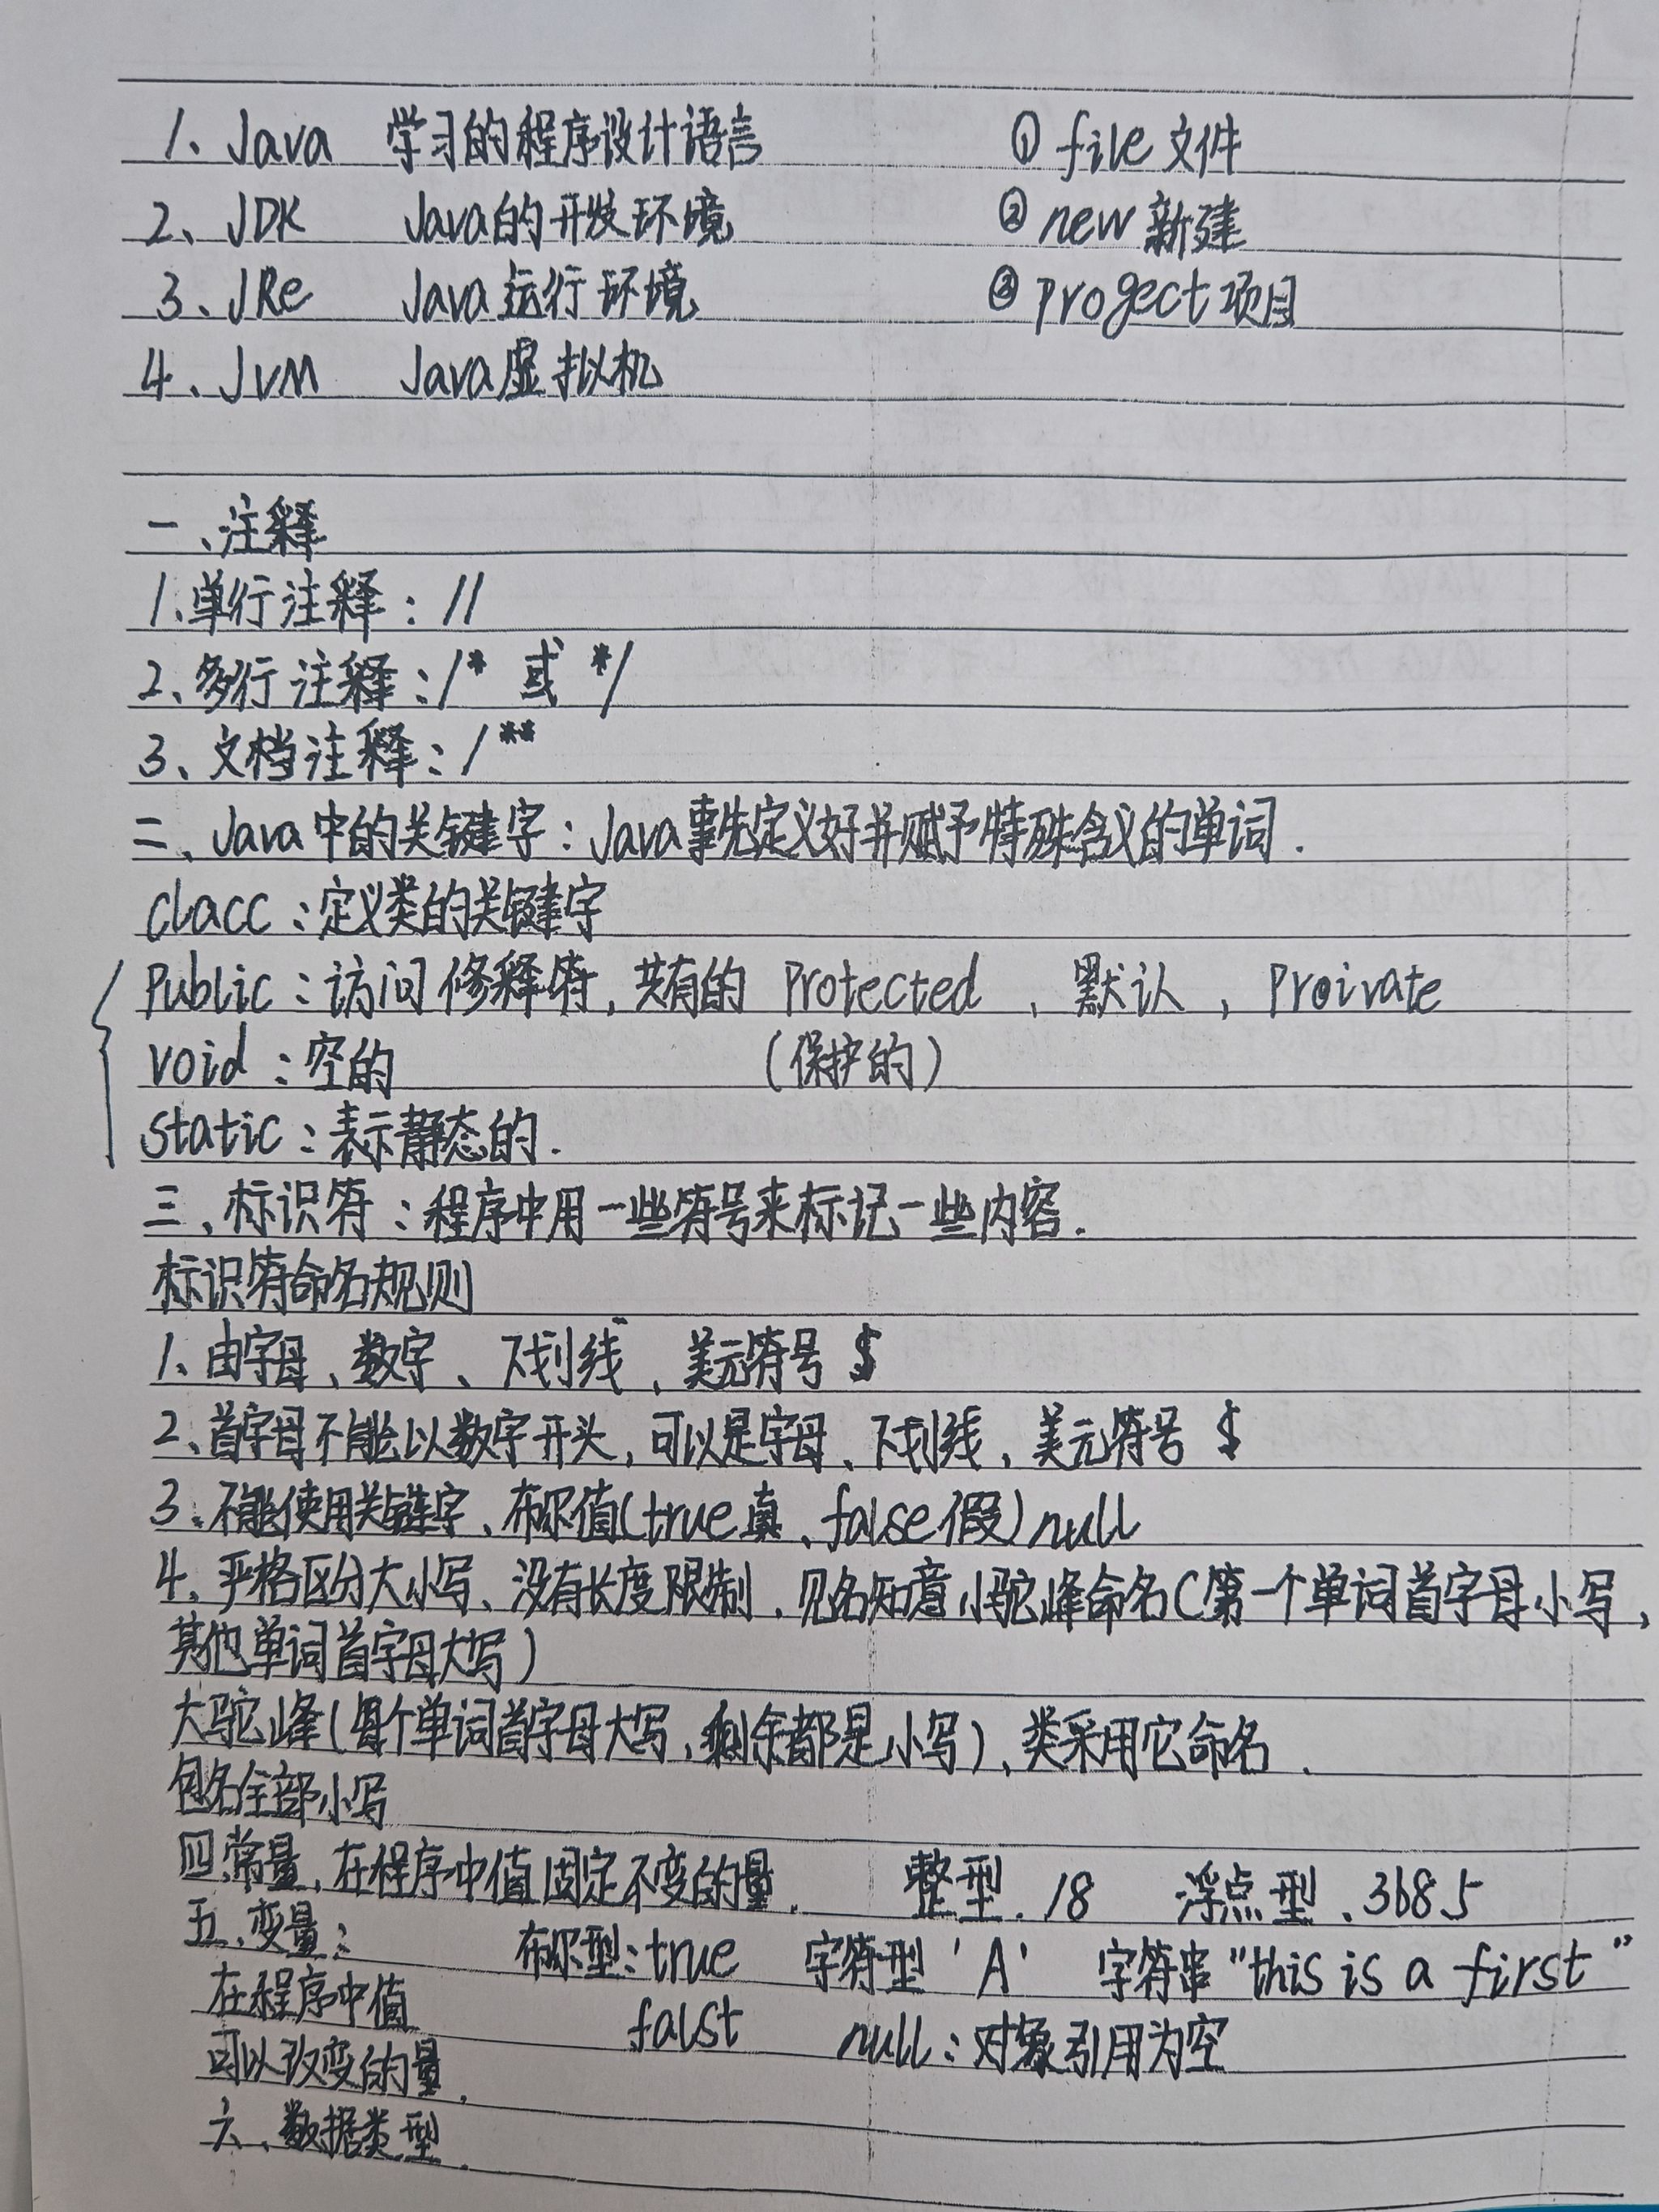 1、Java 学习的程序设计语言 ① file 文件
2、JDK Java的开发环境 ② new 新建
3、JRe Java运行环境 ③ Progect 项目
4、JVM Java虚拟机
一、注释
1.单行注释：//
2、多行注释：/* 或 */
3、文档注释：/**
二、Java中的关键字：Java事先定义好并赋予特殊含义的单词.
clacc：定义类的关键字
Public：访问修释符，共有的 Protected 、默认 ，Proivate
void：空的 （保护的）
static：表示静态的.
三、标识符：程序中用一些符号来标记一些内容.
标识符命名规则
1、由字母、数字、下划线、美元符号 $
2、首字母不能以数字开头，可以是字母、下划线、美元符号 $
3、不能使用关键字、布尔值(true真、false假) null
4、严格区分大小写、没有长度限制、见名知意 小驼峰命名（第一个单词首字母小写、
其他单词首字母大写）
大驼峰(每个单词首字母大写、剩余都是小写)、类采用它命名.
包名全部小写
四、常量、在程序中值固定不变的量. 整型. 18 浮点型、368.5
五、变量： 布尔型：true 字符型 'A' 字符串 "this is a first"
在程序中值 falst null：对象引用为空
可以改变的量.
六、数据类型.